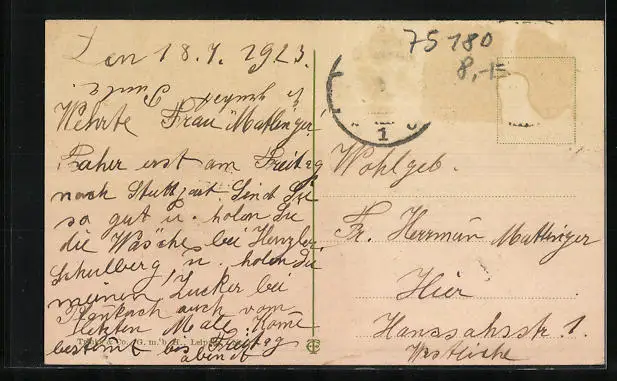 Den 18.7. 1923.
Wehrte Frau Mattinger
Fahre erst am Freitag
nach Stuttgart. Sind Sie
so gut u. holen Sie
die Wäsche bei Henzler
Schulberg, u. holen Sie
meinen Zucker bei
auch vom
letzten Mal. Komme
bestimt bis Freitag
abend
Trinks & Co., G. m. b. H., Leipzig
75180
8,-
1
Wohlgeb.
Fr. Herrman Mattinger
Hier
Hanssachsstr. 1.
Westliche